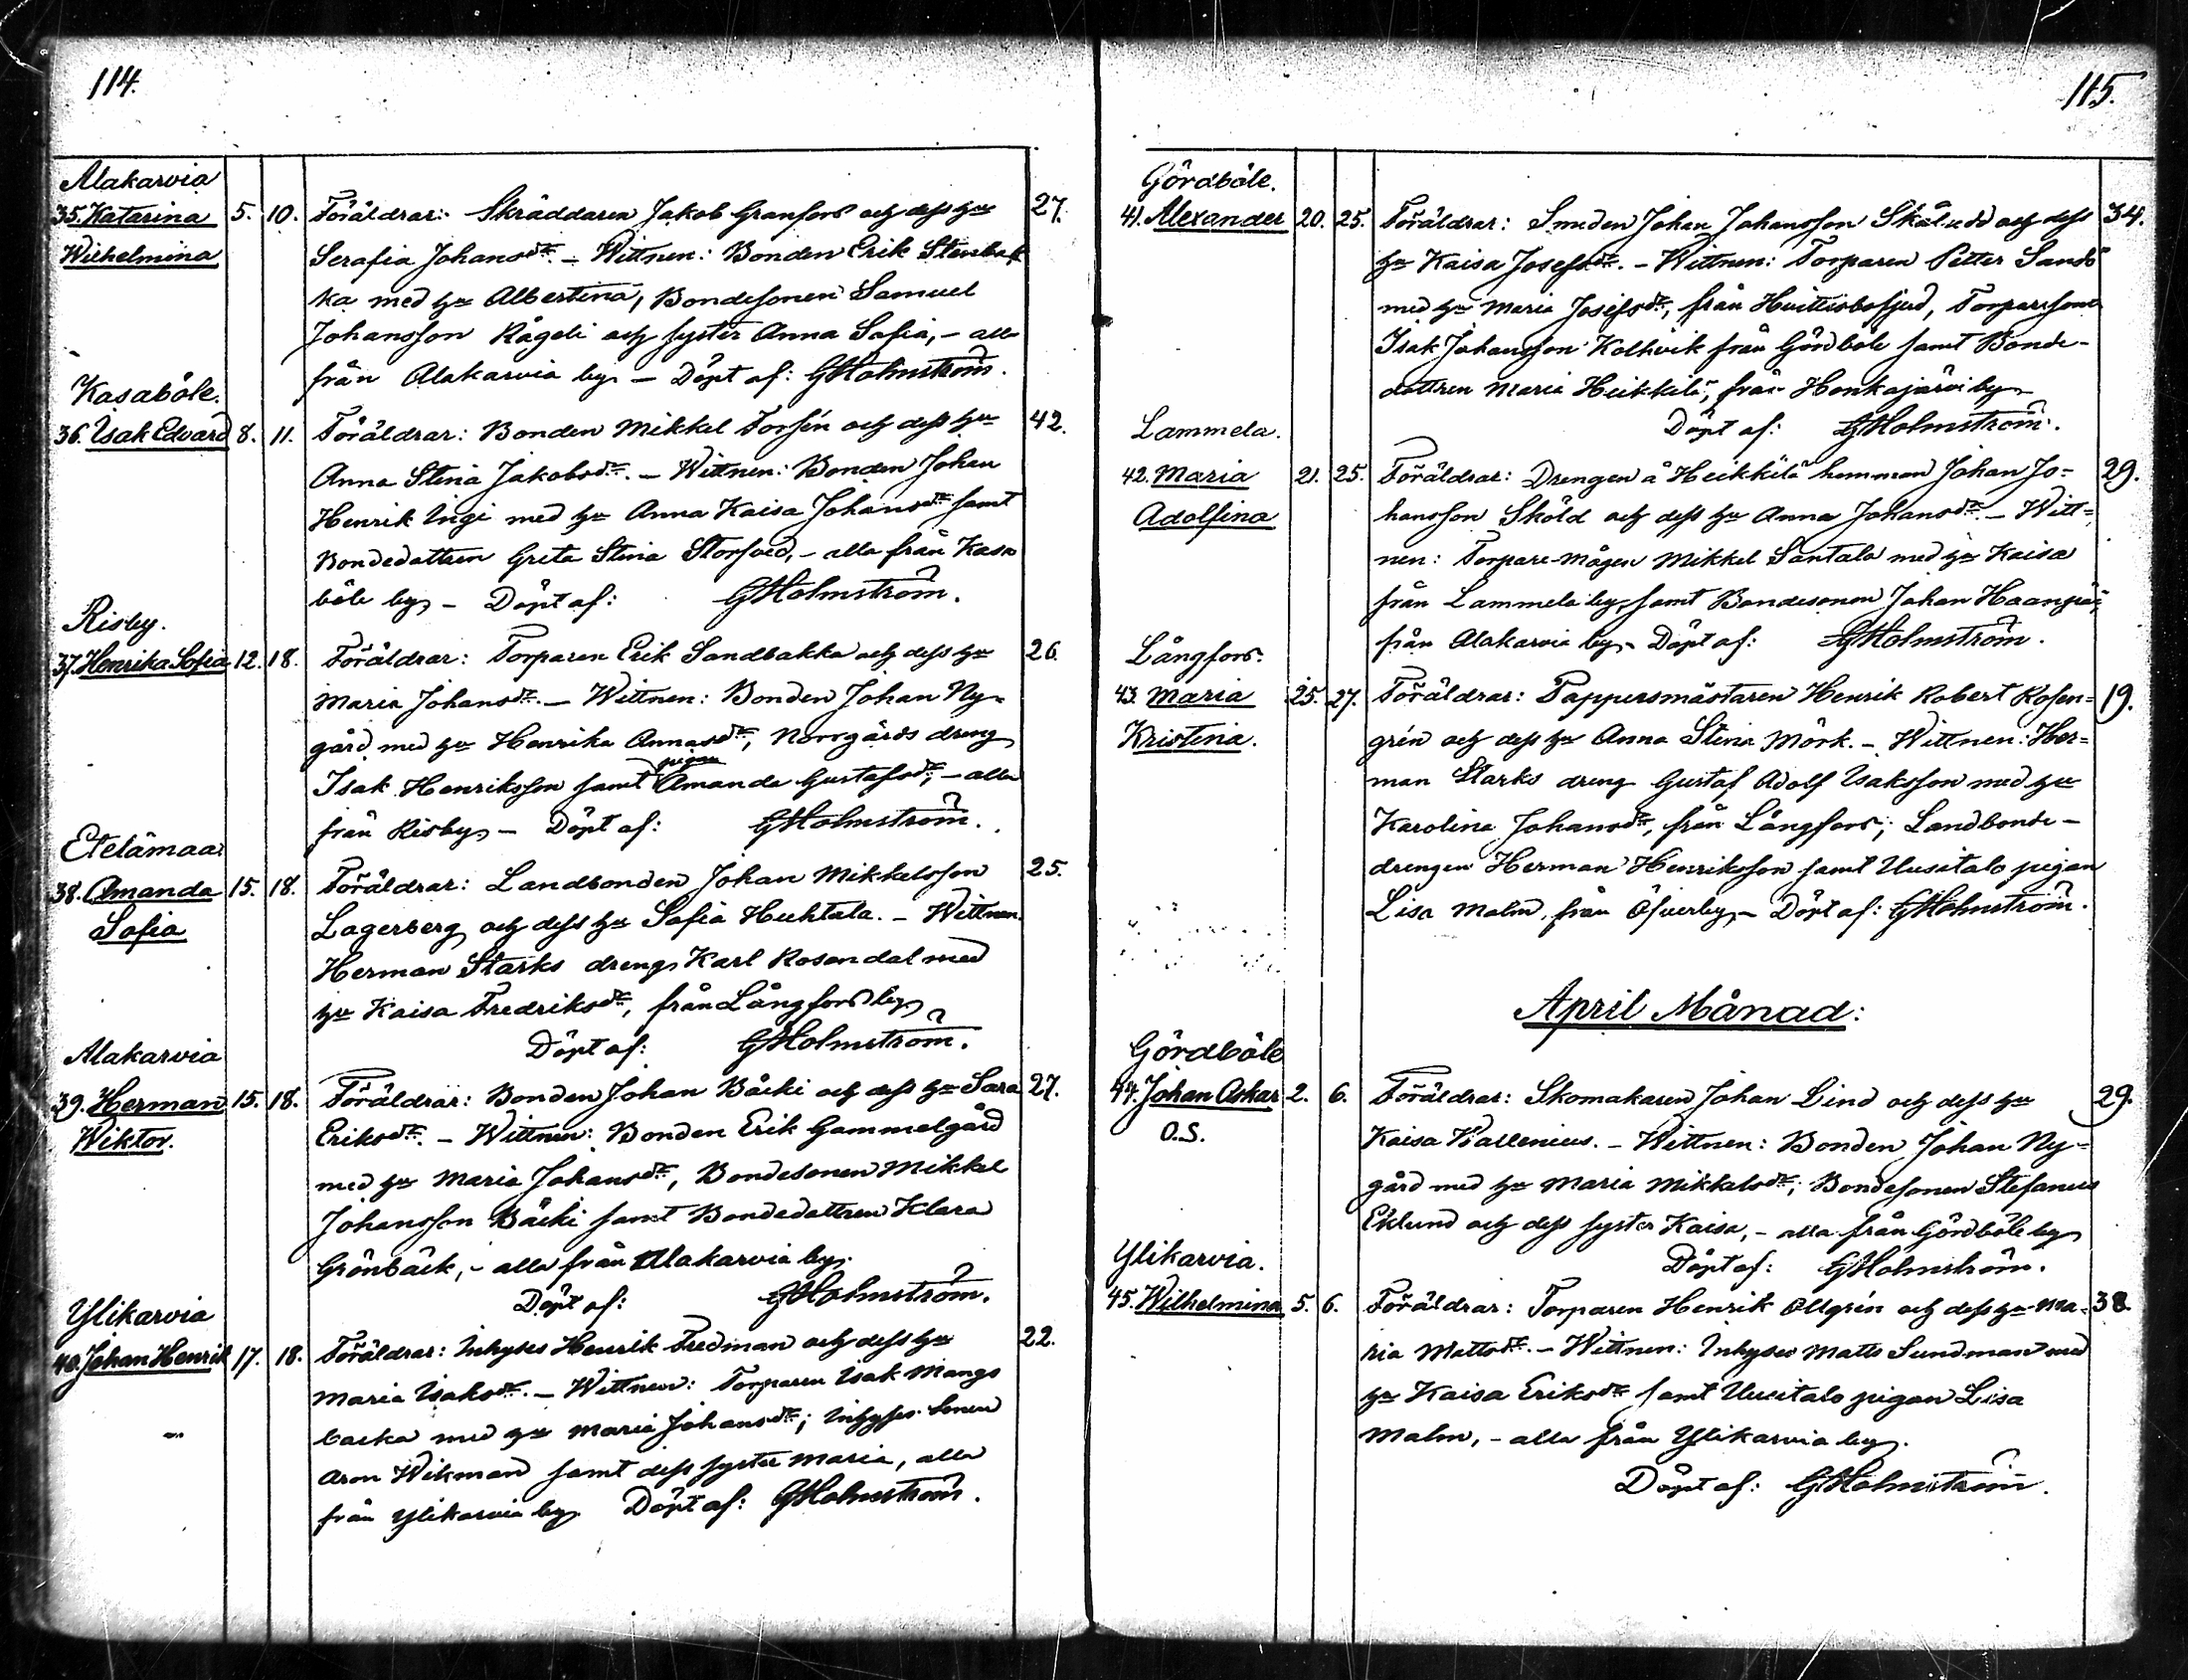 114.
Alakarvia
35. Katarina 5. 10. Föräldrar: Skräddaren Jakob Granfors och dess hu 27.
Wilhelmina Serafia Johansdr. – Wittnen: Bonden Erik Stenback
ka med hu Albertina, Bondesonen Samuel
Johansson Rågeli och syster Anna Sofia, – alla
från Alakarvia by – Döpt af: GHolmström.
Kasaböle.
36. Isak Edvard 8. 11. Föräldrar: Bonden Mikkel Forsén och dess hu 42.
Anna Stina Jakobsdr. – Wittnen: Bonden Johan
Henrik Ingi med hu Anna Kaisa Johansdr samt
Bondedottren Greta Stina Storsved, – alla från Kasa
böle by – Döpt af: GHolmström.
Risby.
37. Henrika Sofia 12. 18. Föräldrar: Torparen Erik Sandbakka och dess hu 26.
Maria Johansdr. – Wittnen: Bonden Johan Ny-
gård med hu Henrika Annasdr, Norrgårds dreng
Isak Henriksson samt pigan Amanda Gustafsdr, – alla
från Risby – Döpt af: GHolmström.
Etelämaa
38. Amanda 15. 18. Föräldrar: Landbonden Johan Mikkelsson 25.
Sofia Lagerberg och dess hu Sofia Huhtala. – Wittnen.
Herman Starks dreng Karl Rosendal med
hu Kaisa Fredriksdr, från Långfors by
Döpt af: GHolmström.
Alakarvia
39. Herman 15. 18. Föräldrar: Bonden Johan Bäcki och dess hu Sara 27.
Wiktor. Eriksdr. – Wittnen: Bonden Erik Gammelgård
med hu Maria Johansdr, Bondesonen Mikkel
Johansson Bäcki samt Bondedottren Klara
Grönbäck, – alla från Alakarvia by.
Döpt af: GHolmström.
Ylikarvia
40. Johan Henrik 17. 18. Föräldrar: Inhyses Henrik Fredman och dess hu 22.
Maria Isaksdr. – Wittnen: Torparen Isak Mangs
backa med hu Maria Johansdr; Inhyses sonen
Aron Wikman samt dess syster Maria, alla
från Ylikarvia by Döpt af: GHolmström.
115.
Gördböle.
41. Alexander 20. 25. Föräldrar: Smeden Johan Johansson och dess 34.
hu Kaisa Josefsdr. – Wittnen: Torparen Petter Sands
med hu Maria Josefsdr, från Huittisbofjerd, Torparesonen
Isak Johansson Kolhvik från Gördböle samt Bonde-
dottren Maria Heikkilä, från Honkajärvi by
Döpt af: GHolmström.
Lammela.
42. Maria 21. 25. Föräldrar: Drengen å Heikkilä hemman Johan Jo- 29.
Adolfina hansson Sköld och dess hu Anna Johansdr. – Witt-
nen: Torpare-mågen Mikkel Santala med hu Kaisa
från Lammela by, samt Bondesonen Johan Haanpää,
från Alakarvia by – Döpt af: GHolmström.
Långfors.
43. Maria 25. 27. Föräldrar: Pappersmästaren Henrik Robert Rosen- 19.
Kristina. grén och dess hu Anna Stina Mörk. – Wittnen: Her-
man Starks dreng Gustaf Adolf Isaksson med hu
Karolina Johansdr, från Långfors; Landbonde-
drengen Herman Henriksson samt Uusitalo pigan
Lisa Malm, från Öfverby, – Döpt af: GHolmström.
April Månad:
Gördböle
44. Johan Oskar 2. 6. Föräldrar: Skomakaren Johan Lind och dess hu 29.
O.S. Kaisa Wallenius. – Wittnen: Bonden Johan Ny-
gård med hu Maria Mikkelsdr; Bondesonen Stefanus
Eklund och dess syster Kaisa, – alla från Gördböle by
Döpt af: GHolmström.
Ylikarvia.
45. Wilhelmina 5. 6. Föräldrar: Torparen Henrik Ollgrén och dess hu Ma- 38.
ria Mattsdr. – Wittnen: Inhyses Matts Sundman med
hu Kaisa Eriksdr samt Uusitalo pigan Lisa
Malm, – alla från Ylikarvia by.
Döpt af: GHolmström.